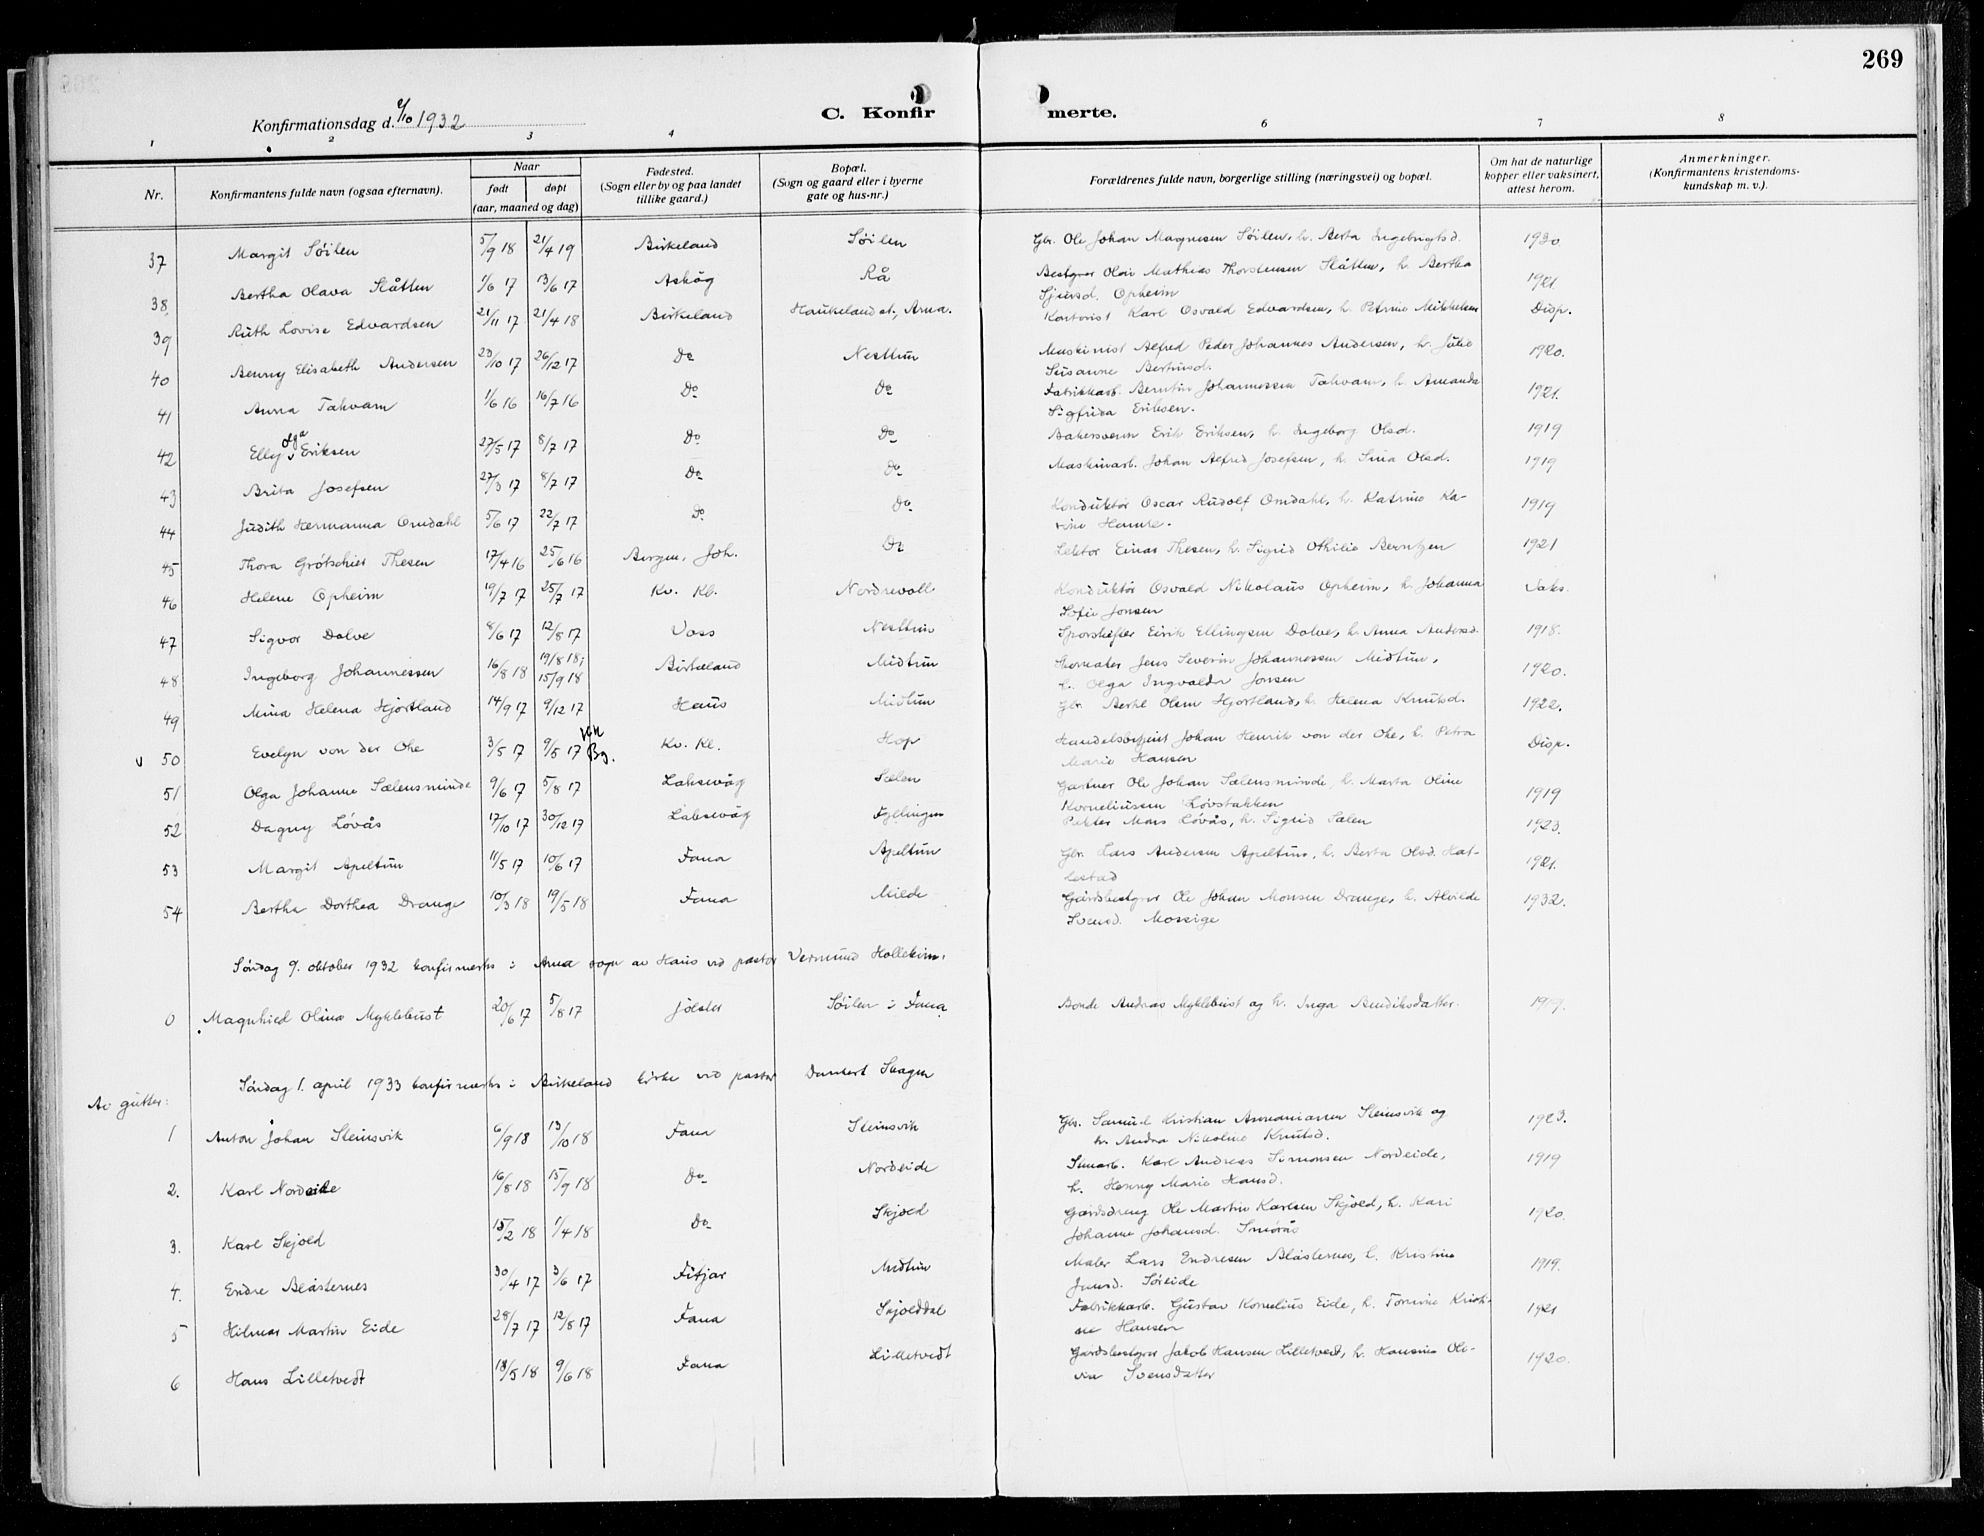 269
Konfirmationsdag d. 9/10 1932
C. Konfirmerte.
1 2 3 4 6 7 8
Nr.
Konfirmantens fulde navn (ogsaa efternavn).
Naar
født døpt
(aar, maaned og dag)
Fødested.
(Sogn eller by og paa landet
tillike gaard.)
Bopæl.
(Sogn og gaard eller i byerne
gate og hus-nr.)
Forældrenes fulde navn, borgerlige stilling (næringsvei) og bopæl.
Om hat de naturlige
kopper eller vaksinert,
attest herom.
Anmerkninger.
(Konfirmantens kristendoms-
kundskap m. v.).
37 Margit Søilen 5/9 18 21/4 19 Birkeland Søilen Gbr. Ole Johan Magnesen Søilen, h. Berta Ingebrigtsd. 1930
38. Bertha Olava Slåtten 1/6 17 13/6 17 Askøg Rå Bestyrer Olai Mathias Thorstensen Slåtten, h. Bertha 1921
Sjursd. Opheim
39 Ruth Lovise Edvardsen 21/11 17 21/4 18 Birkeland Haukeland st., Arna. Kontorist Karl Osvald Edvardsen, h. Petrine Mikkelsen Disp.
40 Benny Elisabeth Andersen 23/10 17 26/12 17 Do Nesttun Maskinist Alfred Peder Johannes Andersen, h. Julie 1920.
Susanne Bertinsd.
41 Anna Takvam 1/6 16 16/7 16 Do Do Fabrikkarb. Berntin Johannessen Takvam, h. Amanda 1921.
Sigfrida Eriksen.
42 Elly Olga Eriksen 27/5 17 8/7 17 Do Do Bakersvenn Erik Eriksen, h. Ingeborg Olsd. 1919
43 Brita Josefsen 27/3 17 8/7 17 Do Do Maskinarb. Johan Alfred Josefsen, h. Sina Olsd. 1919
44 Judith Hermanna Omdahl 5/6 17 22/7 17 Do Do Konduktør Oscar Rudolf Omdahl, h. Katrine Ka- 1919
rine Hamre.
45 Thora Grøtschier Thesen 17/4 16 25/6 16 Bergen, Joh. Do Lektor Einar Thesen, h. Sigrid Othilie Berntzen 1921
46 Helene Opheim 19/7 17 25/7 17 Kv. Kl. Nordrevoll Konduktør Osvald Nikolaus Opheim, h. Johanna Vaks.
Sofie Jonsen
47 Sigvor Dolve 8/6 17 12/8 17 Voss Nesttun Sporskifter Eirik Ellingsen Dolve, h. Anna Andersd. 1918.
48 Ingeborg Johannessen 16/8 18 19/8 18; Birkeland Midtun Skomaker Jens Severin Johannessen Midtun, 1920.
15/9 18 h. Olga Ingvalda Jonsen
49 Mina Helena Hjortland 14/9 17 9/12 17 Haus Midtun Gbr. Bertel Olsen Hjortland, h. Helena Knutsd. 1922.
v 50 Evelyn von der Ohe 3/5 17 9/5 17 Bg. Kv. Kl. Hop Handelsbetjent Johan Henrik von der Ohe, h. Petra Disp.
Marie Hansen
51 Olga Johanne Sælensminde 9/6 17 5/8 17 Laksevåg Sælen Gartner Ole Johan Sælensminde, h. Marta Oline 1919
Korneliussen Løvstakken
52 Dagny Løvås 17/10 17 30/12 17 Laksevåg Fyllingen Pakter Mons Løvås, h. Sigrid Sælen 1923.
53 Margit Apeltun 11/5 17 10/6 17 Fana Apeltun Gbr. Lars Andersen Apeltun, h. Berta Olsd. Hat- 1921.
lestad
54 Bertha Dorthea Drange 10/3 18 19/5 18 Fana Milde Gårdsbestyrer Ole Johan Monsen Drange, h. Alvilde 1932.
Svensd. Mossige
Søndag 9. oktober 1932 konfirmerts i Arna sogn av Haus ved pastor Vermund Hollekim.
0 Magnhild Olina Myklebust 20/6 17 5/8 17 Jølster Søilen i Fana Bonde Andreas Myklebust og h. Inga Bendiksdatter. 1919.
Søndag 1. april 1933 konfirmerts i Birkeland kirke ved pastor Dankert Skagen
Av gutter:
1 Anton Johan Steinsvik 6/9 18 13/10 18 Fana Steinsvik Gbr. Samuel Kristian Steinsvik og 1923.
h. Andra Nikoline Knutsd.
2. Karl Nordeide 16/8 18 15/9 18 Do Nordeide Karl Andreas Simonsen Nordeide, 1919
h. Henny Marie Hansd.
3. Karl Skjold 15/2 18 1/4 18 Do Skjold Gårdsdreng Ole Martin Karlsen Skjold, h. Kari 1920.
Johanne Johansd. Smørås
4. Endre Blåsternes 30/4 17 3/6 17 Fitjar Midtun Maler Lars Endresen Blåsternes, h. Kristine 1919.
Jensd. Søreide
5 Hilmar Martin Eide 28/7 17 12/8 17 Fana Skjolddal Fabrikkarb. Gustav Kornelius Eide, h. Tomine Kristi- 1921
ne Hansen
6 Hans Lilletvedt 18/5 18 9/6 18 Fana Lilletvedt Gårdsbestyrer Jakob Hansen Lilletvedt, h. Hansine Oli- 1920.
via Svensdatter